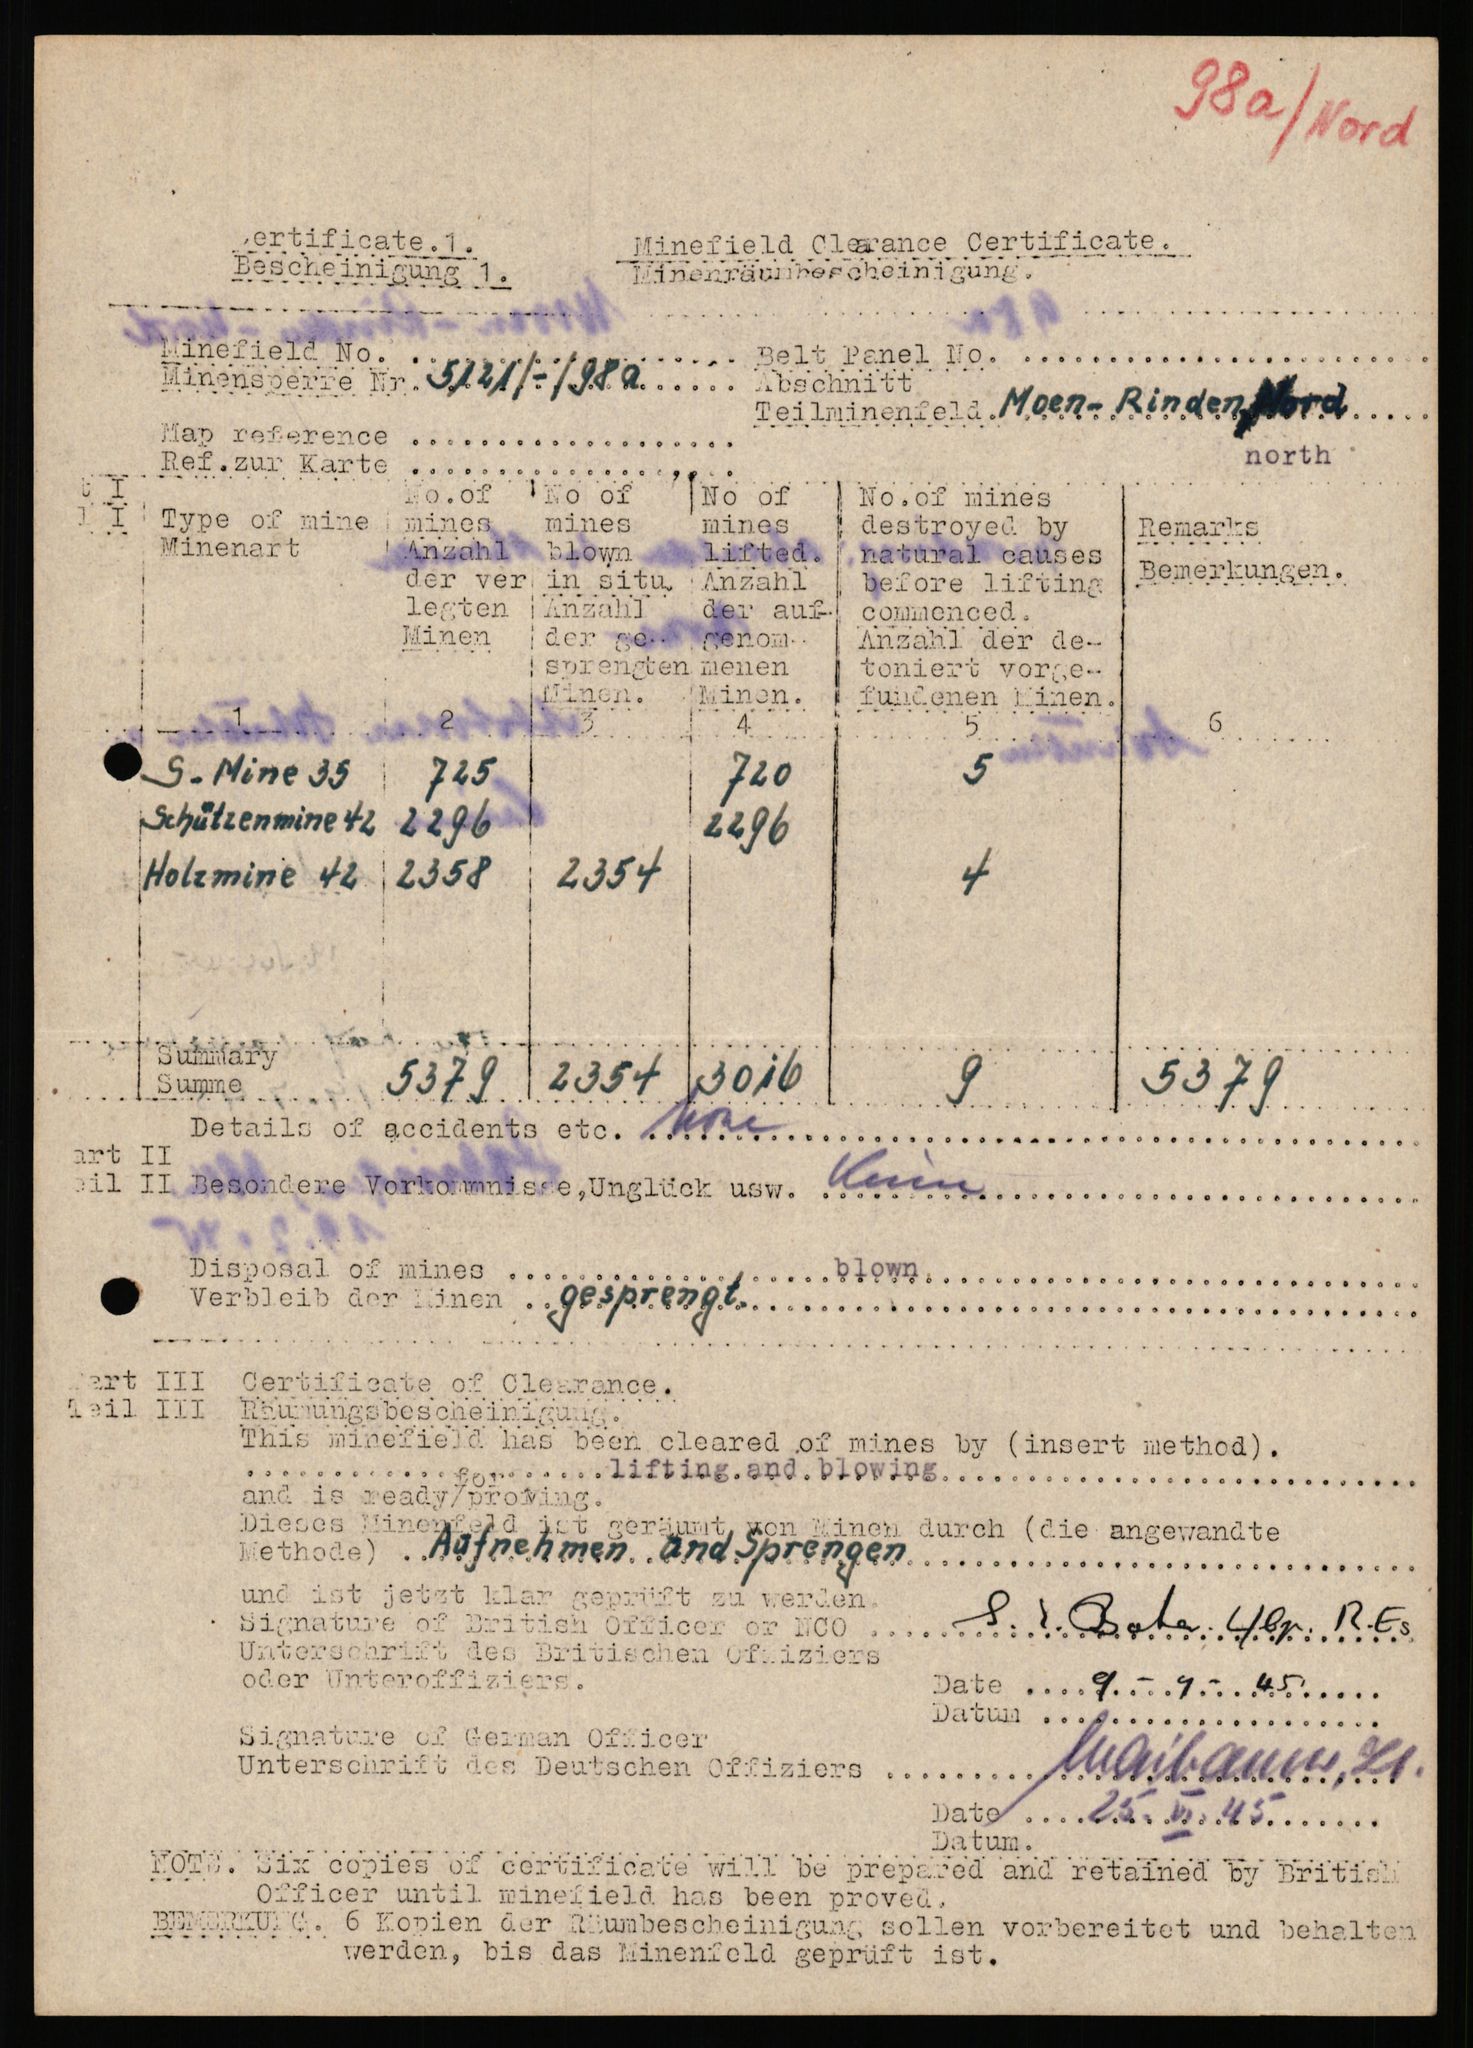 98a/Nord
ertificate.1.
Minefield Clearance Certificate.
Bescheinigung 1.
Minenräumbescheinigung.
Minefield No. Belt Panel No.
Minensperre Nr. 5121/-/98a Abschnitt
Teilminenfeld. Moen-Rinden, Nord
north
Map reference
Ref.zur Karte
t I
l I
Type of mine
Minenart
No.of
mines
Anzahl
der ver
legten
Minen
No of
mines
blown
in situ.
Anzahl
der ge-
sprengten
Minen.
No of
mines
lifted.
Anzahl
der auf-
genom-
menen
Minen.
No.of mines
destroyed by
natural causes
before lifting
commenced.
Anzahl der de-
toniert vorge-
fundenen Minen.
Remarks
Bemerkungen.
1 2 3 4 5 6
S.Mine 35 725 720 5
Schützenmine 42 2296 2296
Holzmine 42 2358 2354 4
Summary
Summe 5379 2354 3016 9 5379
Details of accidents etc. None
art II
eil II Besondere Vorkommnisse,Unglück usw. Keine
Disposal of mines blown
Verbleib der Minen gesprengt.
Part III Certificate of Clearance.
Teil III Räumungsbescheinigung.
This minefield has been cleared of mines by (insert method).
lifting and blowing
and is ready/for proving.
Dieses Minenfeld ist geräumt von Minen durch (die angewandte
Methode) Aufnehmen and Sprengen
und ist jetzt klar geprüft zu werden.
Signature of British Officer or NCO R.Es
Unterschrift des Britischen Offiziers
oder Unteroffiziers.
Date 9-7-45
Datum
Signature of German Officer
Unterschrift des Deutschen Offiziers Maibaum, Lt.
Date 25.VI.45
Datum.
NOTE. Six copies of certificate will be prepared and retained by British
Officer until minefield has been proved.
BEMERKUNG. 6 Kopien der Räumbescheinigung sollen vorbereitet und behalten
werden, bis das Minenfeld geprüft ist.